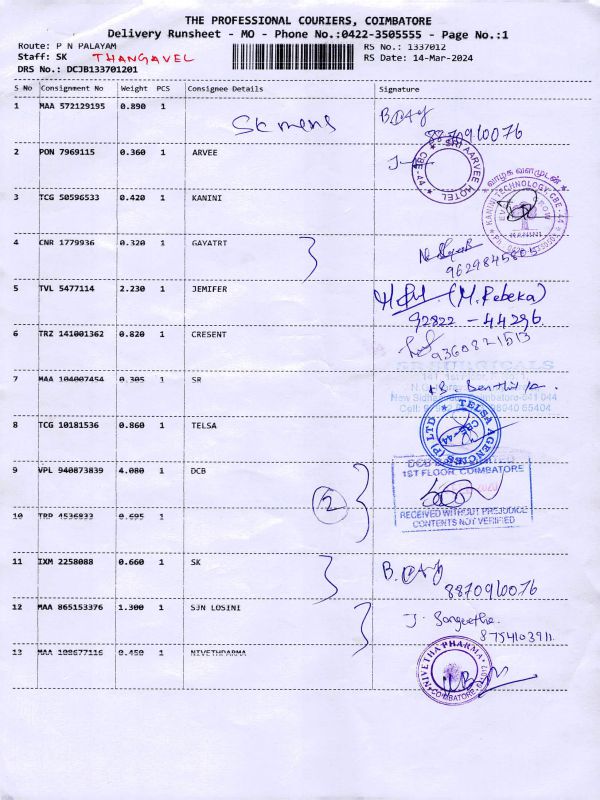 THE PROFESSIONAL COURIERS, COIMBATORE
Delivery Runsheet - MO - Phone No.:0422-3505555 - Page No.:1
Route: P N PALAYAM
RS No.: 1337012
Staff: SK THANGAVEL
RS Date: 14-Mar-2024
DRS No.: DCJB133701201
S No Consignment No Weight PCS Consignee Details Signature
1 MAA 572129195 0.890 1
8870960076
2 PON 7969115 0.360 1 ARVEE
SRI AARVEE HOTEL
CBE-44
வாழ்க வளமுடன்
3 TCG 50596533 0.420 1 KANINI
KANINI TECHNOLOGY CBE-44
KANINI
4 CNR 1779936 0.320 1 GAYATRT
9629845805
5 TVL 5477114 2.230 1 JEMIFER
(M. Rebeka)
92822 - 44296
6 TRZ 141001362 0.820 1 CRESENT
9360821513
7 MAA 104007454 0.305 1 SR
8 TCG 10181536 0.860 1 TELSA
TELSA AGENCIES (P) LTD
CBE-44
9 VPL 940873839 4.080 1 DCB
DCB
1ST FLOOR, COIMBATORE
RECEIVED WITHOUT PREJUDICE
CONTENTS NOT VERIFIED
2
10 TRP 4536833 0.695 1
11 IXM 2258088 0.660 1 SK
8870960076
12 MAA 865153376 1.300 1 SJN LOSINI
J. Sangeetha
8754103911
13 MAA 108677116 0.450 1 NIVETHPARMA
NIVETHA PHARMA
COIMBATORE